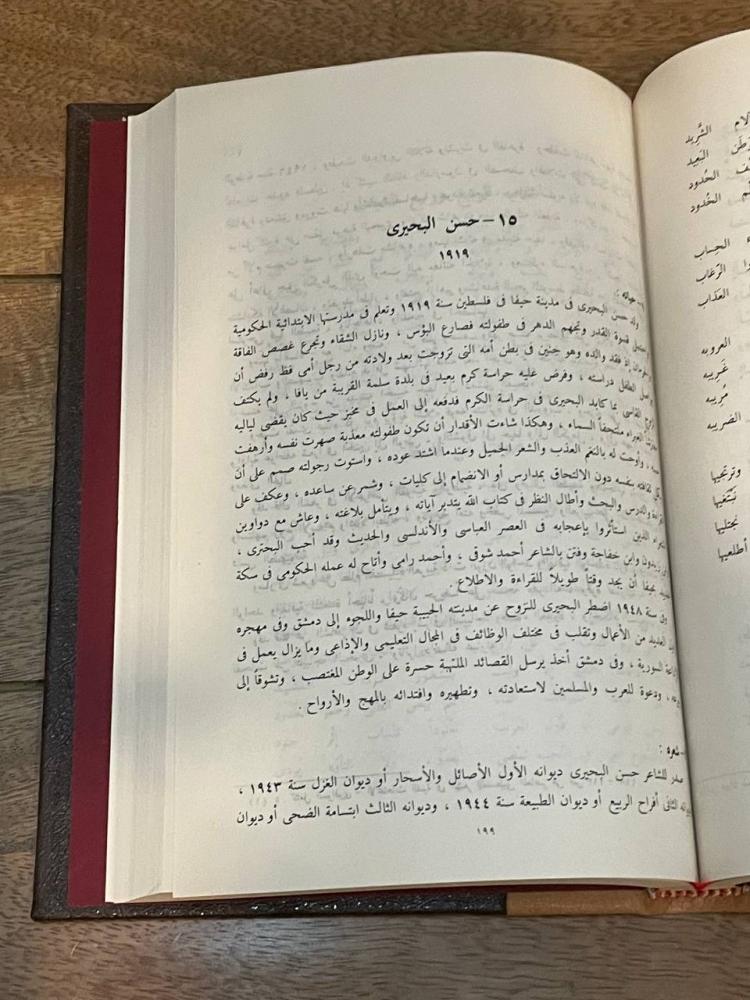 ١٥ - حسن البحيرى
١٩١٩
حياته :
ولد حسن البحيرى فى مدينة حيفا فى فلسطين سنة ١٩١٩ وتعلم فى مدرستها الابتدائية الحكومية
قسوة القدر وتجهم الدهر فى طفولته فصارع البؤس ، ونازل الشقاء وتجرع غصص الفاقة
إذ فقد والده وهو جنين فى بطن أمه التى تزوجت بعد ولادته من رجل أمى فظ رفض أن
الطفل دراسته ، وفرض عليه حراسة كرم بعيد فى بلدة سلمة القريبة من يافا ، ولم يكتف
القاسى بما كابد البحيرى فى حراسة الكرم فدفعه إلى العمل فى مخبز حيث كان يقضى لياليه
الغبراء ملتحفاً السماء ، وهكذا شاءت الأقدار أن تكون طفولته معذبة صهرت نفسه وأرهفت
، وأوحت له بالنغم العذب والشعر الجميل وعندما اشتد عوده ، واستوت رجولته صمم على أن
ثقافته بنفسه دون الالتحاق بمدارس أو الانضمام إلى كليات ، وشمر عن ساعده ، وعكف على
والدرس والبحث وأطال النظر فى كتاب الله يتدبر آياته ، ويتأمل بلاغته ، وعاش مع دواوين
الذين استأثروا بإعجابه فى العصر العباسى والأندلسى والحديث وقد أحب البحترى ،
زيدون وابن خفاجة وفتن بالشاعر أحمد شوقى ، وأحمد رامى وأتاح له عمله الحكومى فى سكة
بحيفا أن يجد وقتاً طويلا للقراءة والاطلاع .
وفى سنة ١٩٤٨ اضطر البحيرى للنزوح عن مدينته الحبيبة حيفا واللجوء إلى دمشق وفى مهجره
العديد من الأعمال وتقلب فى مختلف الوظائف فى المجال التعليمى والإذاعى وما يزال يعمل فى
السورية ، وفى دمشق أخذ يرسل القصائد الملتهبة حسرة على الوطن المغتصب ، وتشوقاً إلى
، ودعوة للعرب والمسلمين لاستعادته ، وتطهيره وافتدائه بالمهج والأرواح .
شعره :
صدر للشاعر حسن البحيرى ديوانه الأول الأصائل والأسحار أو ديوان الغزل سنة ١٩٤٣ ،
الثانى أفراح الربيع أو ديوان الطبيعة سنة ١٩٤٤ ، وديوانه الثالث ابتسامة الضحى أو ديوان
١٩٩
الشَّرِيد
البَعِيد
الحُدود
الخُدود
الحِساب
الرِّعاب
العَذاب
العروبه
غَريبه
مُريبه
الضريبه
وترتجيها
نجتليها
أطلعيها